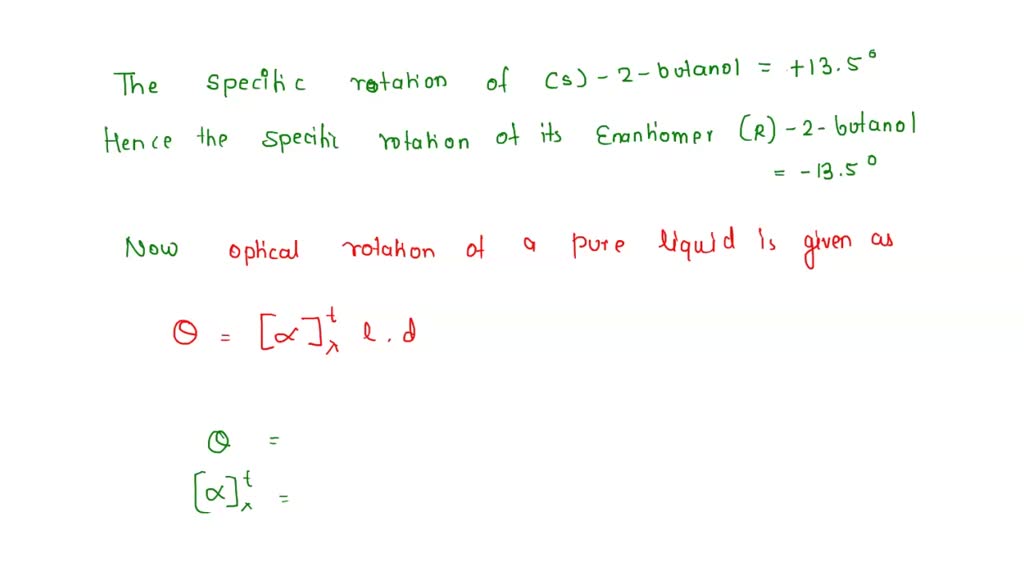 The specific rotation of (S)-2-butanol = +13.5°
Hence the specific rotation of its Enantiomer (R)-2-butanol
= -13.5°
Now optical rotation of a pure liquid is given as
θ = [α]ᵗ_λ l.d
θ =
[α]ᵗ_λ =